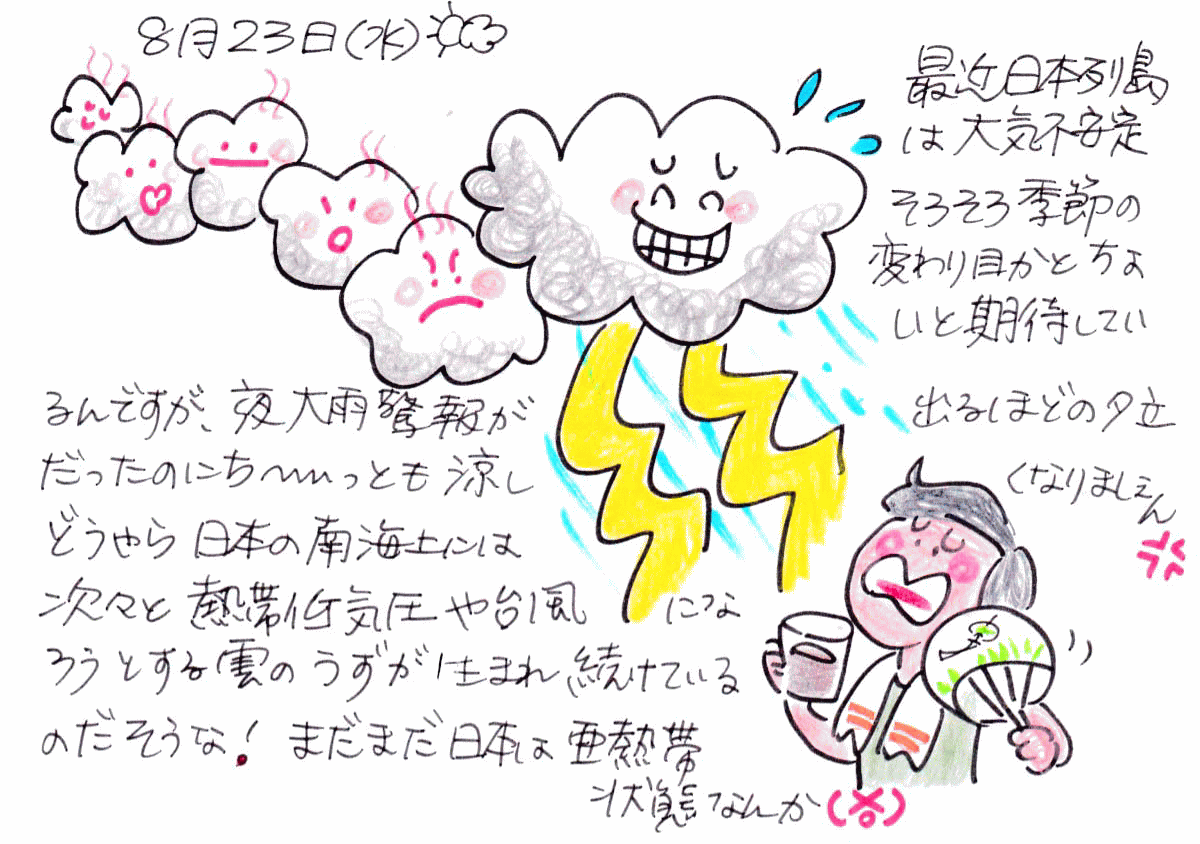 8月23日(水)
最近日本列島
は大気不安定
そろそろ季節の
変わり目かとちょ
いと期待してい
るんですが、夜大雨警報が
出るほどの夕立
だったのにち〜〜っとも涼し
くなりましぇん
どうやら日本の南海上には
次々と熱帯低気圧や台風にな
ろうとする雲のうずが生まれ続けている
のだそうな! まだまだ日本は亜熱帯
状態なんか(答)